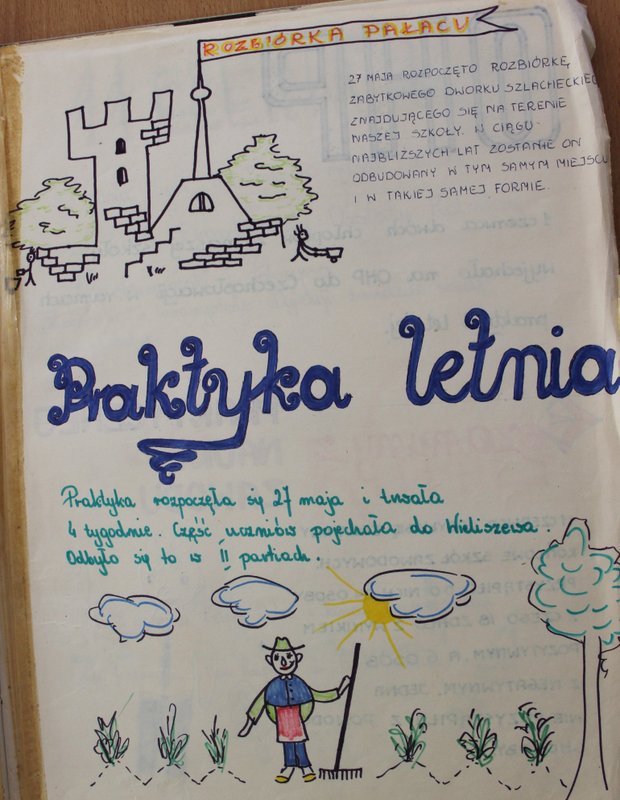 ROZBIÓRKA PAŁACU
27 MAJA ROZPOCZĘTO ROZBIÓRKĘ
ZABYTKOWEGO DWORKU SZLACHECKIEGO
ZNAJDUJĄCEGO SIĘ NA TERENIE
NASZEJ SZKOŁY. W CIĄGU
NAJBLIŻSZYCH LAT ZOSTANIE ON
ODBUDOWANY W TYM SAMYM MIEJSCU
I W TAKIEJ SAMEJ FORMIE.
Praktyka letnia
Praktyka rozpoczęła się 27 maja i trwała
4 tygodnie. Część uczniów pojechała do Wieliszewa.
Odbyło się to w II partiach.